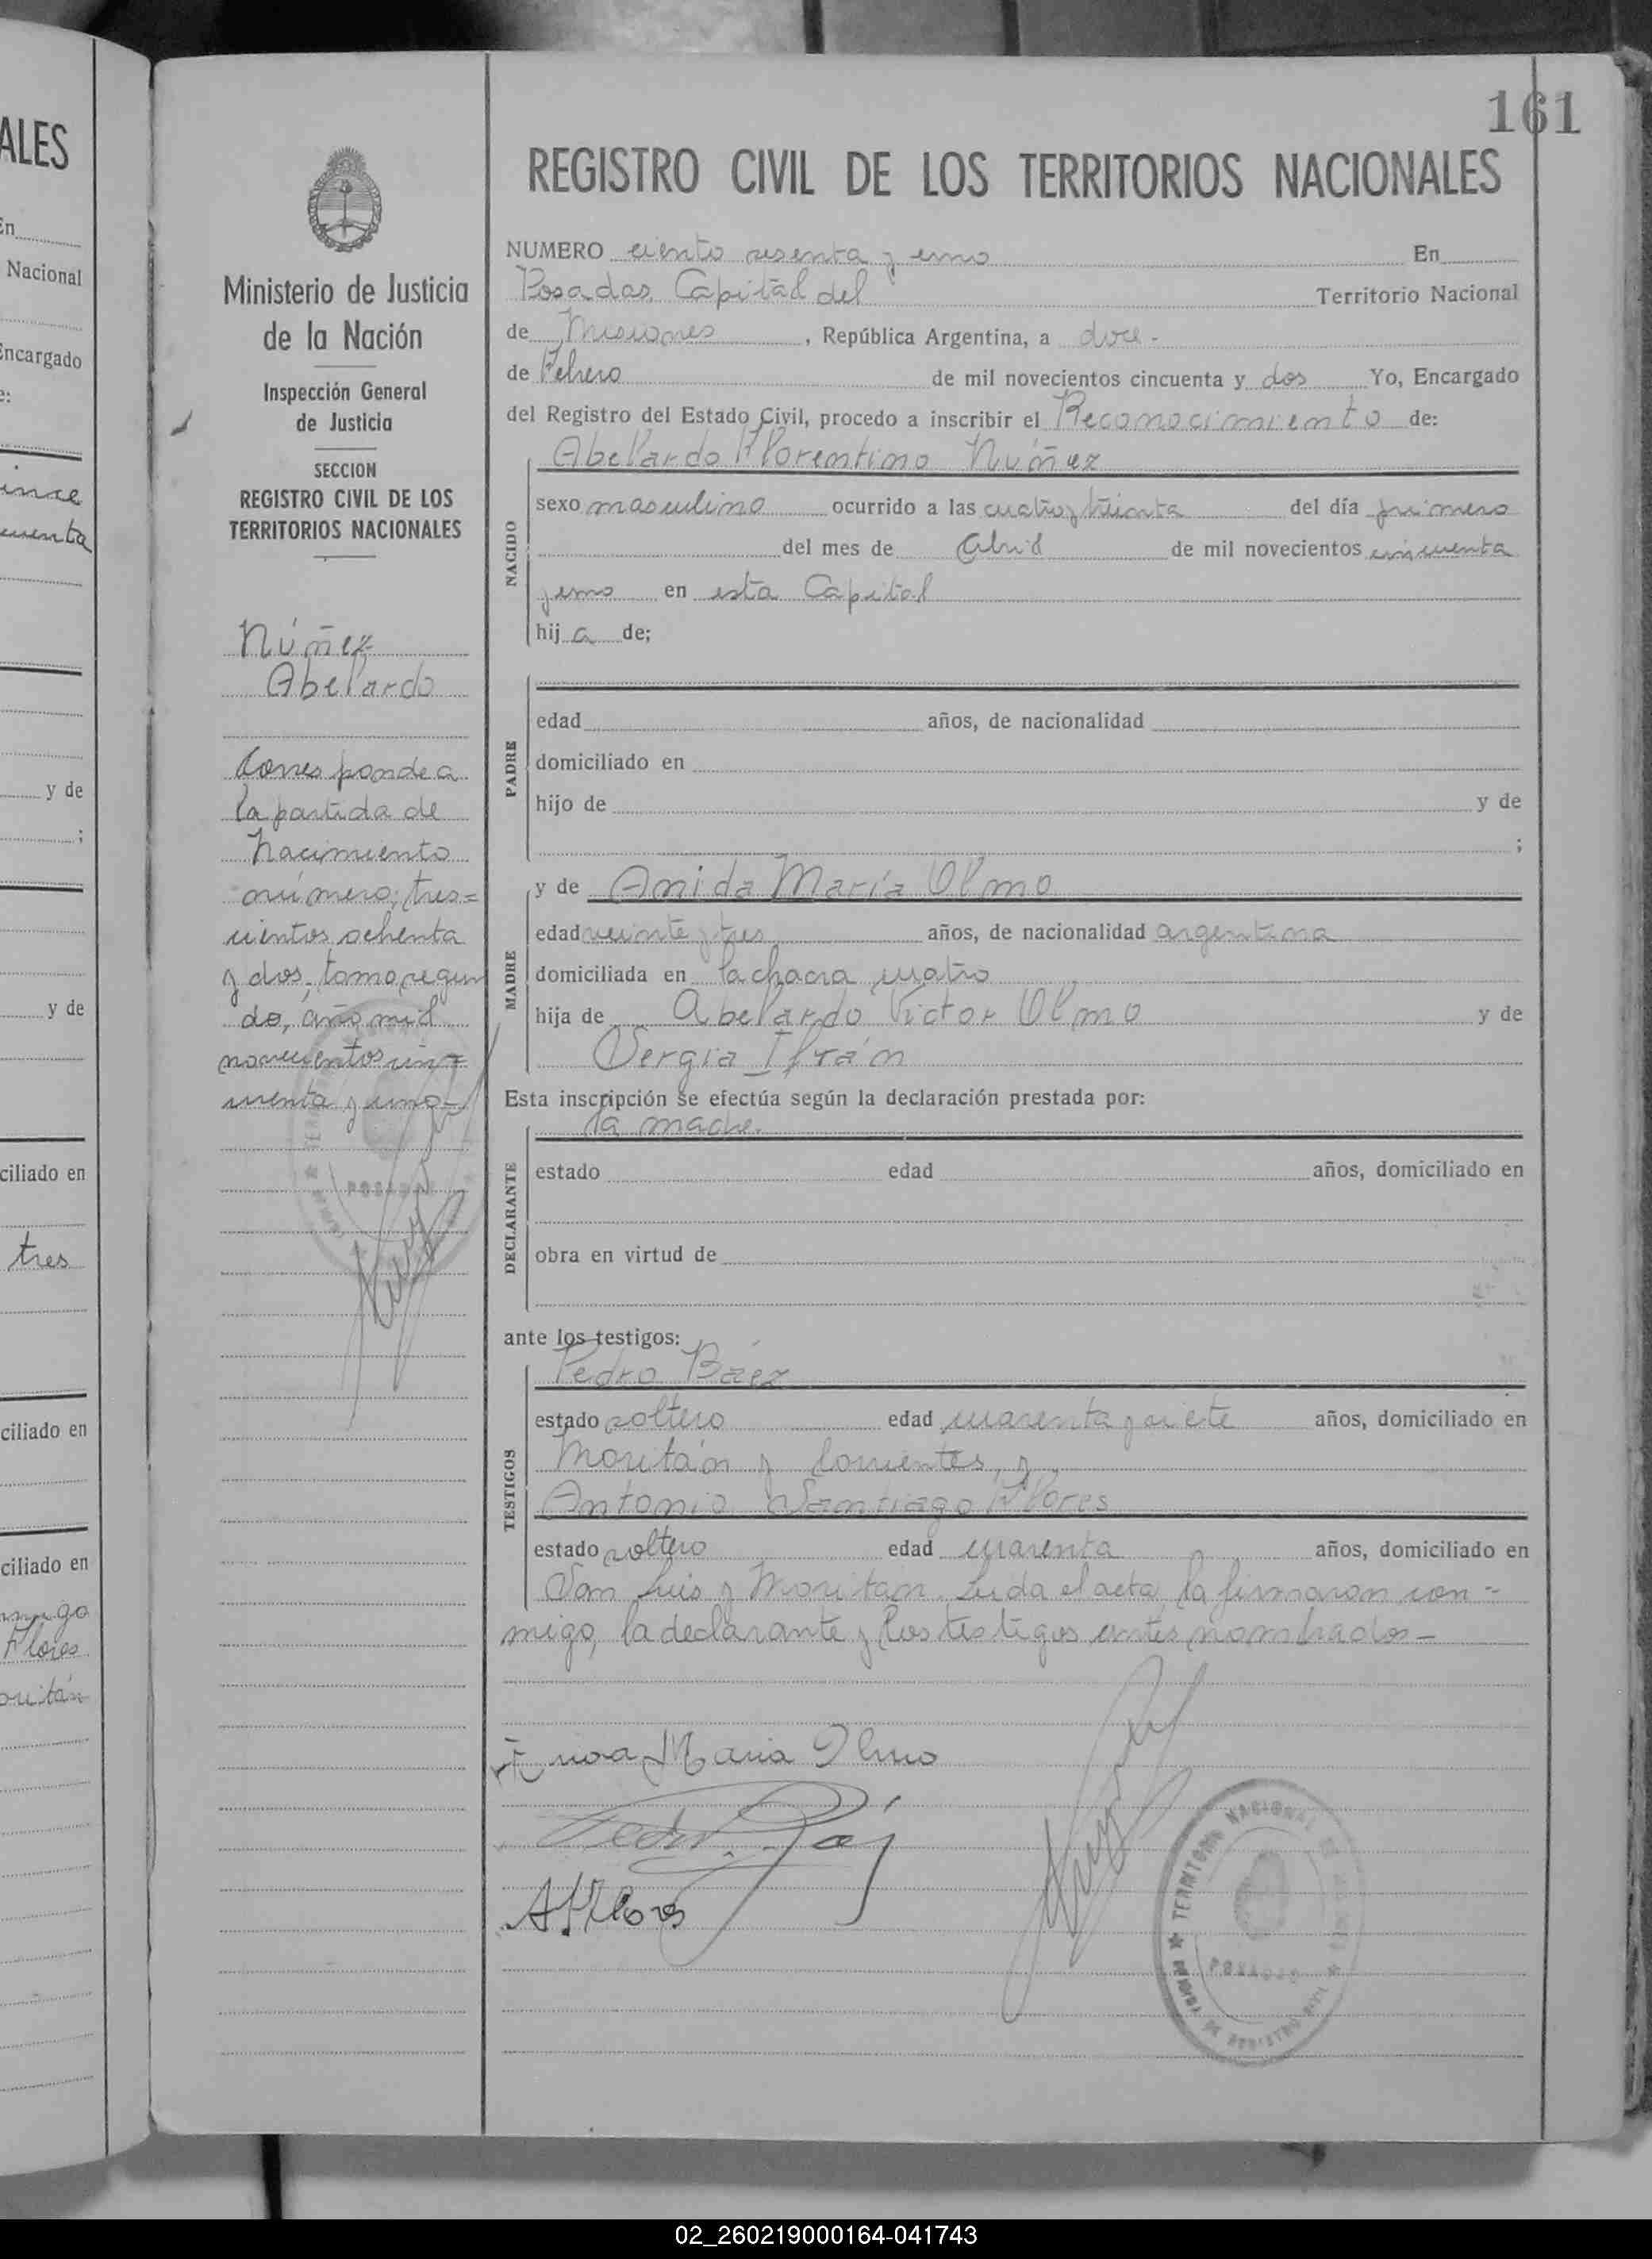 ALES
En
Nacional
Encargado
e:
ince
cuenta
y de
;
y de
ciliado en
tres
ciliado en
ciliado en
migo
Flores
161
REGISTRO CIVIL DE LOS TERRITORIOS NACIONALES
Ministerio de Justicia
de la Nación
Inspección General
de Justicia
SECCION
REGISTRO CIVIL DE LOS
TERRITORIOS NACIONALES
Núñez
Abelardo
Corresponde a
la partida de
Nacimiento
número, tres=
cientos ochenta
y dos, tomo segun
do, año mil
novecientos cin=
cuenta y uno
POSADAS
NUMERO ciento sesenta y uno En
Posadas Capital del Territorio Nacional
de Misiones, República Argentina, a doce-
de Febrero de mil novecientos cincuenta y dos Yo, Encargado
del Registro del Estado Civil, procedo a inscribir el Reconocimiento de:
Abelardo Florentino Núñez
NACIDO
sexo masculino ocurrido a las cuatro y treinta del día primero
del mes de Abril de mil novecientos cincuenta
y uno en esta Capital
hij a de;
PADRE
edad años, de nacionalidad
domiciliado en
hijo de y de
;
MADRE
y de Anida María Olmo
edad veinte y tres años, de nacionalidad argentina
domiciliada en la chacra cuatro
hija de Abelardo Victor Olmo y de
Sergia Ifrán
Esta inscripción se efectúa según la declaración prestada por:
la madre.
DECLARANTE
estado edad años, domiciliado en
obra en virtud de
ante los testigos:
Pedro Báez
TESTIGOS
estado soltero edad cuarenta y siete años, domiciliado en
Moritán y Corrientes, y
Antonio Santiago Flores
estado soltero edad cuarenta años, domiciliado en
San Luis y Moritan. Leida el acta la firmaron con-
migo, la declarante y los testigos antes nombrados-
Maria Olmo
Pedro
A S Flores
TERRITORIO NACIONAL DE MISIONES
POSADAS
OFICINA DE REGISTRO CIVIL
02_260219000164-041743